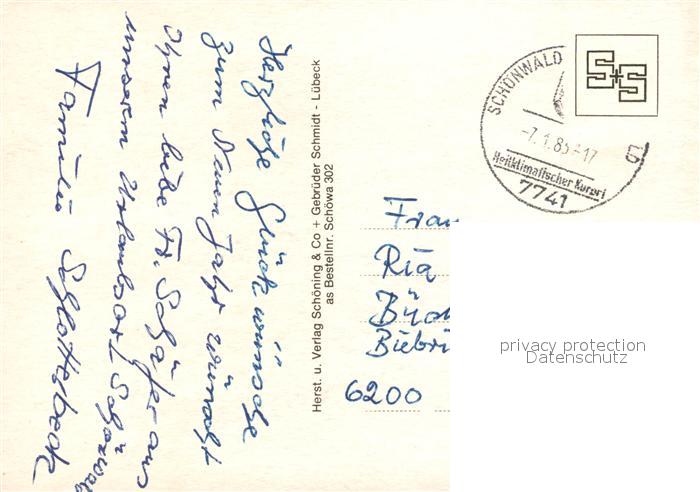 Herzliche Glückwünsche
zum Neuen Jahr wünscht
Ihnen liebe Fr. Schäfer aus
unserem Urlaubsort Schönwald
Familie Schlotterbeck
Herst. u. Verlag Schöning & Co + Gebrüder Schmidt - Lübeck
as Bestellnr. Schöwa 302
SCHÖNWALD
-7.1.85-17
Heilklimatischer Kurort
7741
S+S
Frau
Ria
Biebri
6200
privacy protection
Datenschutz